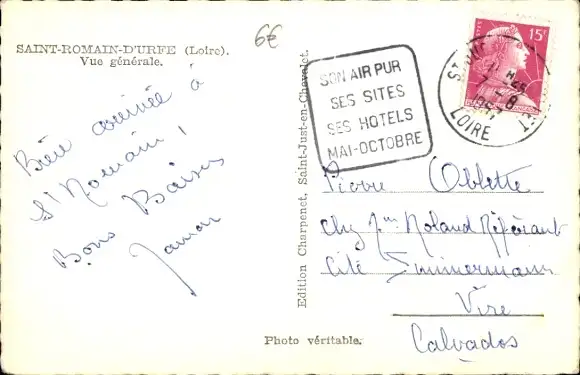 SAINT-ROMAIN-D'URFE (Loire).
Vue générale.
6€
Bien arrivée à
St Romain!
Bons Baisers
SON AIR PUR
SES SITES
SES HOTELS
MAI-OCTOBRE
15F
LOIRE
Edition Charpenet, Saint-Just-en-Chevalet.
Pierre Oblette
Chez
Roland Référant
Cité Zimmermann
Vire
Calvados
Photo véritable.